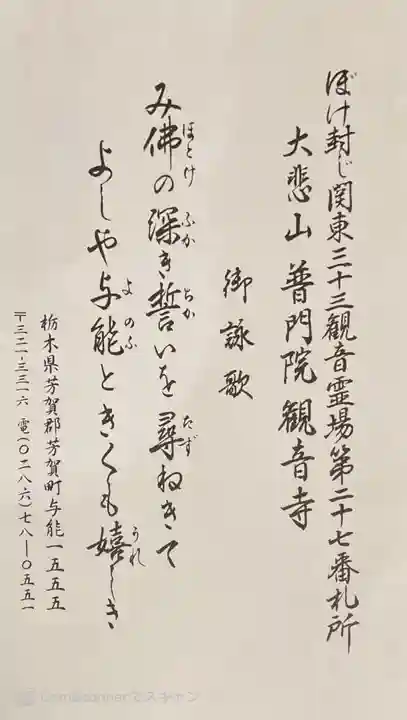 ぼけ封じ関東三十三観音霊場第二十七番札所
大悲山 普門院 観音寺
御詠歌
み佛の深き誓いを尋ねきて
ほとけ ふか ちか たず
よしや与能ときくも嬉しき
よのふ うれ
栃木県芳賀郡芳賀町与能一五五五
〒三二一-三三一六 電(〇二八六)七八-〇五五一
CamScannerでスキャン